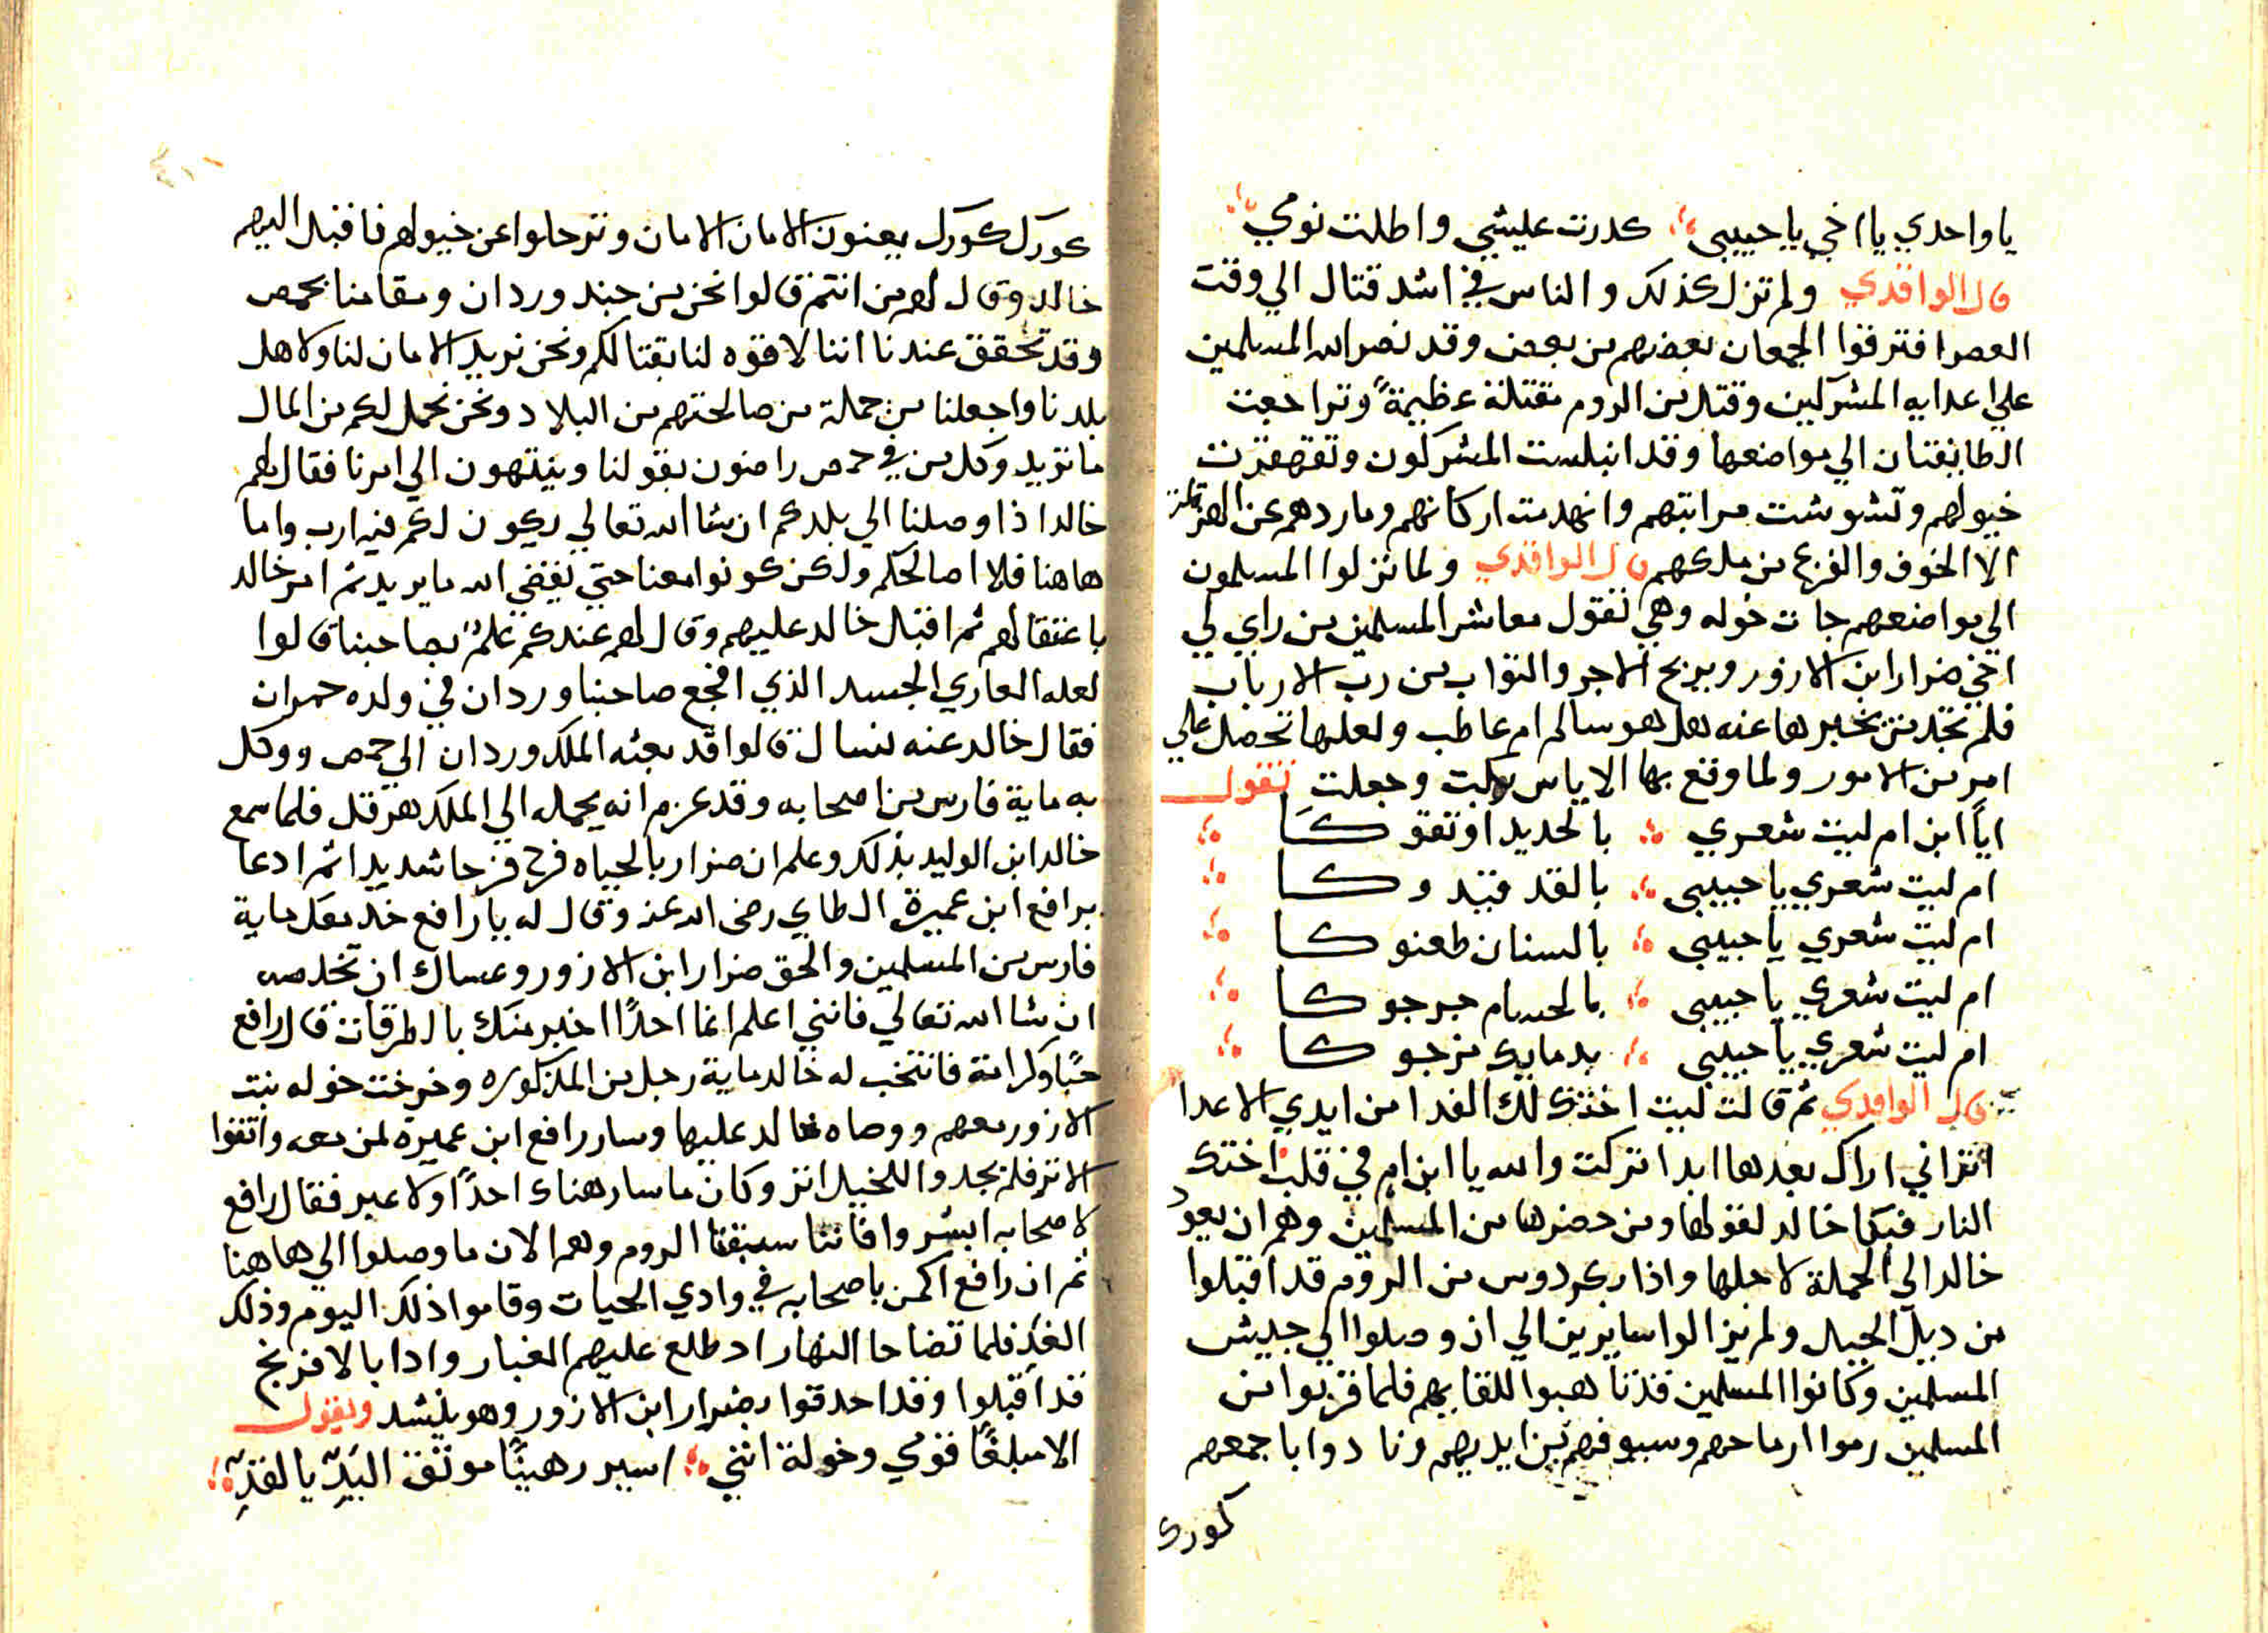 يا واحدي يا اخي يا حبيبي كدرت عليشي واطلت نومي
قال الواقدي ولم تزل كذلك والناس في اشد قتال الي وقت
العصر افترقوا الجمعان بعضهم من بعض وقد نصر الله المسلمين
علي اعدايه المشركين وقتل من الروم مقتلة عظيمةً وتراجعت
الطايفتان الي مواضعها وقد انبلست المشركون وتقهقرت
خيولهم وتشوشت مراتبهم وانهدمت اركانهم وماردهم عن الهزيمة
الا الخوف والفزع من ملكهم قال الواقدي ولما نزلوا المسلمون
الي مواضعهم جات خوله وهي تقول معاشر المسلمين من راي لي
اخي ضرار ابن الازور ويربح الاجر والثواب من رب الارباب
فلم تجد من يخبرها عنه هل هو سالم ام عاطب ولعلها تحصل علي
امر من الامور ولما وقع بها الاياس بكت وجعلت تقول
ايا ابن ام ليت شعري بالحديد اوثقوكا
ام ليت شعري يا حبيبي بالقد قيدوكا
ام ليت شعري يا حبيبي بالسنان طعنوكا
ام ليت شعري يا حبيبي بالحسام جرحوكا
ام ليت شعري يا حبيبي بدمايك مزجوكا
قال الواقدي ثم قالت ليت اختك لك الفدا من ايدي الاعدا
اتراني اراك بعدها ابدا تركت والله يا ابن ام في قلب اختك
النار فبكا خالد لقولها ومن حضرها من المسلمين وهم ان يعود
خالد الي الحملة لاجلها واذا بكردوس من الروم قد اقبلوا
من ديل الجبل ولم يزالوا سايرين الي ان وصلوا الي جيش
المسلمين وكانوا المسلمين قد تاهبوا للقايهم فلما قربوا من
المسلمين رموا ارماحهم وسيوفهم من ايديهم ونادوا باجمعهم
كورك
كورك كورك يعنون الامان الامان وترحلوا عن خيولهم فاقبل اليهم
خالد وقال لهم من انتم قالوا نحن من جند وردان ومقامنا بحمص
وقد تحقق عندنا اننا لا قوه لنا بقتالكم ونحن نريد الامان لنا ولاهل
بلدنا واجعلنا من جملة من صالحتهم من البلاد ونحن نحمل لكم من المال
ما تريد وكل من في حمص راضون بقولنا وينتهون الي امرنا فقال لهم
خالد اذا وصلنا الي بلدكم ان شا الله تعالي يكون لكم فيه ارب واما
هاهنا فلا اصالحكم ولكن كونوا معنا حتي يقضي الله ما يريد ثم امر خالد
باعتقالهم ثم اقبل خالد عليهم وقال لهم عندكم علمٌ بصاحبنا قالوا
لعله العاري الجسد الذي افجع صاحبنا وردان في ولده حمران
فقال خالد عنه نسال قالوا قد بعثه الملك وردان الي حمص ووكل
به ماية فارس من اصحابه وقد عزم انه يحمله الي الملك هرقل فلما سمع
خالد ابن الوليد بذلك وعلم ان ضرار بالحياه فرح فرحا شديدا ثم ادعا
برافع ابن عميرة الطاي رضى الله عنه وقال له يا رافع خد معك ماية
فارس من المسلمين والحق ضرار ابن الازور وعساك ان تخلصه
ان شا الله تعالي فانني اعلم انما احدًا اخبر منك بالطرقات قال رافع
حبًا وكرامة فانتخب له خالد ماية رجل من المذكوره وخرخت خوله بنت
الازور معهم ووصاه خالد عليها وسار رافع ابن عميره لمن معه واتقفوا
الاثر فلم يجدوا للخيل اثر وكان ما سار هناك احدًا ولا عبر فقال رافع
لاصحابه ابشروا فاننا سبقنا الروم وهم الان ما وصلوا الي هاهنا
ثم ان رافع اكمن باصحابه في وادي الحيات وقاموا ذلك اليوم وذلك
الغد فلما تضاحا النهار اد طلع عليهم الغبار وادا بالافرنج
قد اقبلوا وقد احدقوا بضرار ابن الازور وهو ينشد ويقول
الا مبلغًا قومي وخولة انني اسير رهينًا موثق اليدّ بالقدِّ